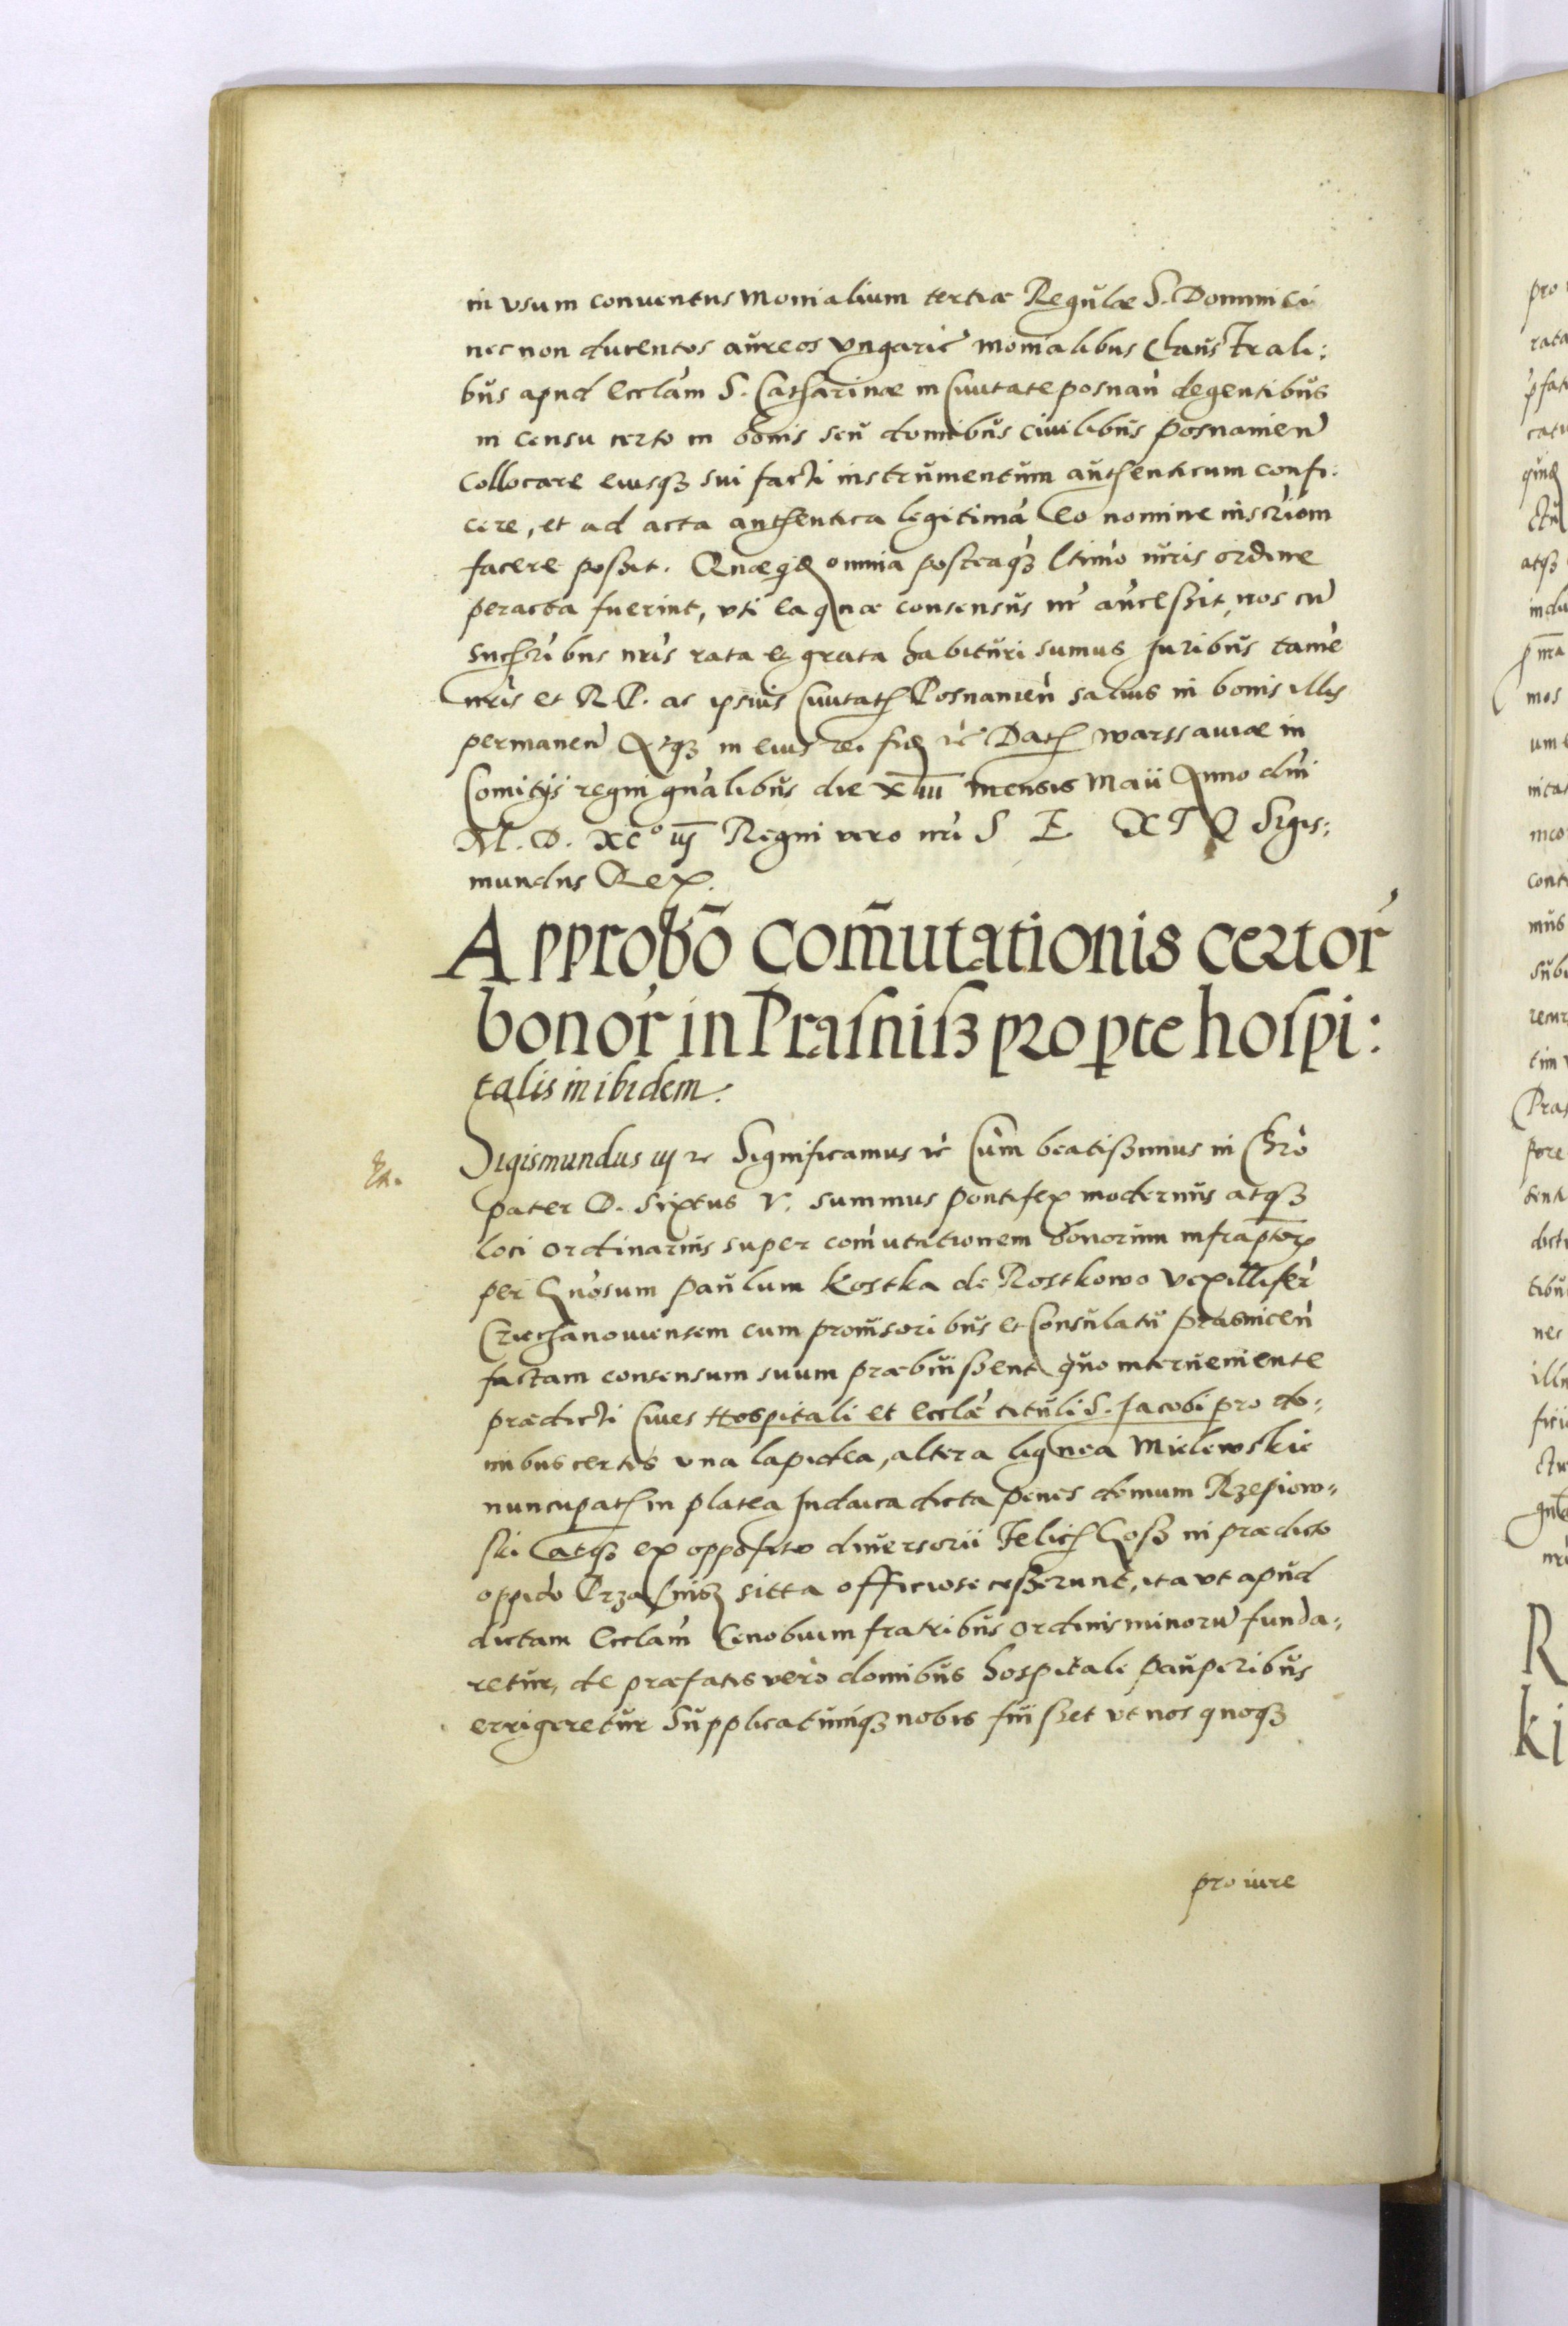 in vsum conuentus Monialium tertiæ Regulæ S. Dominici
nec non ducentos aureos vngaric monialibus Claustrali:
bus apud Eccl̃am S. Catharinæ in Ciuitate posnan̄ degentibus
in censu certo in bonis seu domibus ciuilibus posnanien̄
collocare eiusqꝫ sui facti instrumentum authenticum confi:
cere, et ad acta authentica legitimā eo nomine inscr̃iom
facere possit. Quæ omnia posteaqꝫ ltimo iuris ordine
peracta fuerint, vti ea quæ consensus nr̃ an̄cessit, nos cū
Succ̃ribus nr̃is rata et grata habituri sumus Iuribus tamē
nr̃is et R P. ac ipsius Ciuitatꝭ Posnanien̄ saluis in bonis illis
permanen̄ Atqꝫ in eius rei fid ꝛc̃ Datꝭ warssauiæ in
Comitijs regni gnālibus die xiii mensis Maii Anno dn̄i
M. D. XC° iij Regni vero nr̃i S E X T Q Sigis:
mundus Rex.
Approbō Com̄utationis certor̃
bonor̃ in Prasnisꝫ pro ꝑte hospi:
talis inibidem.
Sigismundus iij ꝛc Significamus ꝛc̃ Cum beatissimus in Chr̃o
pater D. Sixtus V. summus pontifex modernus atqꝫ
loci ordinarius super com̄utationem bonorum infraptorꝝ
per Gn̄osum Paulum Kostka de Rostkowo vexillifer̃
Cziechanouiensem cum prouisoribus et Consulatu prasnicen̄
factam consensum suum præbuissent quo interueniente
prædicti Ciues Hospitali et eccl̃æ tituli S. Jacobi pro do:
mibus certis vna lapidea, altera lignea Milewskie
nuncupatꝭ in platea Iudaica dicta penes domum Rzepiow:
ski atqꝫ ex opposito diuersorii Felicꝭ Gosꝫ in prædicto
oppido Przasnisꝫ sitta officiose cesserunt, ita vt apud
dictam Eccl̃am Cenobium fratribus ordinis minorū funda:
retur, de præfatis vero domibus hospitale pauperibus
errigeretur Supplicatumqꝫ nobis fuisset vt nos quoqꝫ
pro iure